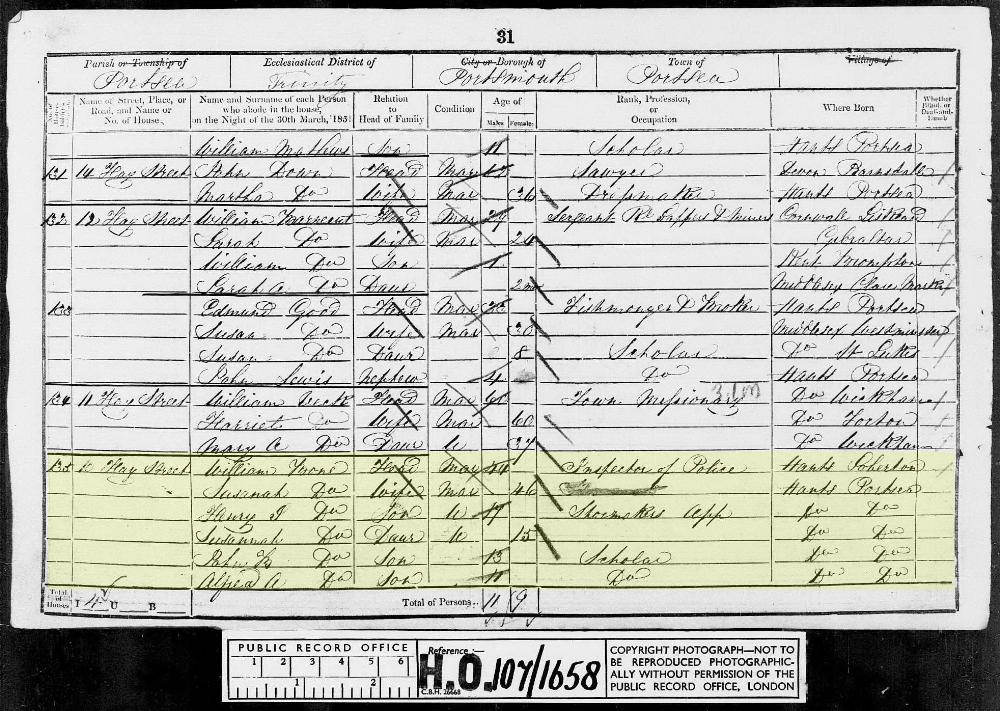 31
Parish or Township of Ecclesiastical District of City or Borough of Town of Village of
Portsea Trinity Portsmouth Portsea
Name of Street, Place, or Road, and Name or No. of House Name and Surname of each Person who abode in the house, on the Night of the 30th March, 1851 Relation to Head of Family Condition Age of Males Females Rank, Profession, or Occupation Where Born Whether Blind, or Deaf-and-Dumb
William Mathews Son 11 Scholar Hants Portsea
131 14 Hay Street John Down Head Mar Sawyer Devon
Martha Do Wife Mar 36 Dressmaker Hants Portsea
132 12 Hay Street William Head Mar 29 Sergeant Rl Sappers & Miners Cornwall
Sarah Do Wife Mar 24 Gibraltar
William Do Son 1 Kent Brompton
Sarah A Do Daur 2 Clare Market
133 Edmund Good Head Mar Fishmonger & Smoker Hants Portsea
Susan Do Wife Mar 30 Middlesex Westminster
Susan Do Daur 8 Scholar Do St Lukes
John Lewis Nephew 4 Do Hants Portsea
134 11 Hay Street William Head Mar Town Missionary Do Wickham
Harriet Do Wife Mar 60 Do
Mary A Do Daur U 37 Do Wickham
135 Hay Street William Head Mar 44 Inspector of Police Hants Soberton
Susanah Do Wife Mar 46 Hants Portsea
Henry J Do Son U 17 Shoemakers App Do Do
Susannah Do Daur U 15 Do Do
John Do Son 13 Scholar Do Do
Alfred A Do Son 11 Do Do Do
Total of Houses I 4 U B Total of Persons.. 11 9
PUBLIC RECORD OFFICE
1 2 3 4 5 6
1 2
Reference:—
H.O. 107/1658
C.B.H. 26668
COPYRIGHT PHOTOGRAPH—NOT TO BE REPRODUCED PHOTOGRAPHIC-
ALLY WITHOUT PERMISSION OF THE
PUBLIC RECORD OFFICE, LONDON